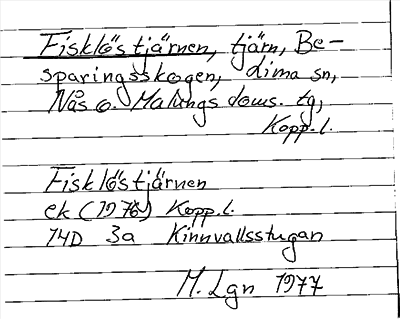 Fisklöstjärnen, tjärn, Be-
sparingsskogen, Lima sn,
Nås o. Malungs doms. tg,
Kopp. l.
Fisklöstjärnen
ek (1976) Kopp. l.
14D 3a Kinnvallsstugan
M. Lgn 1977